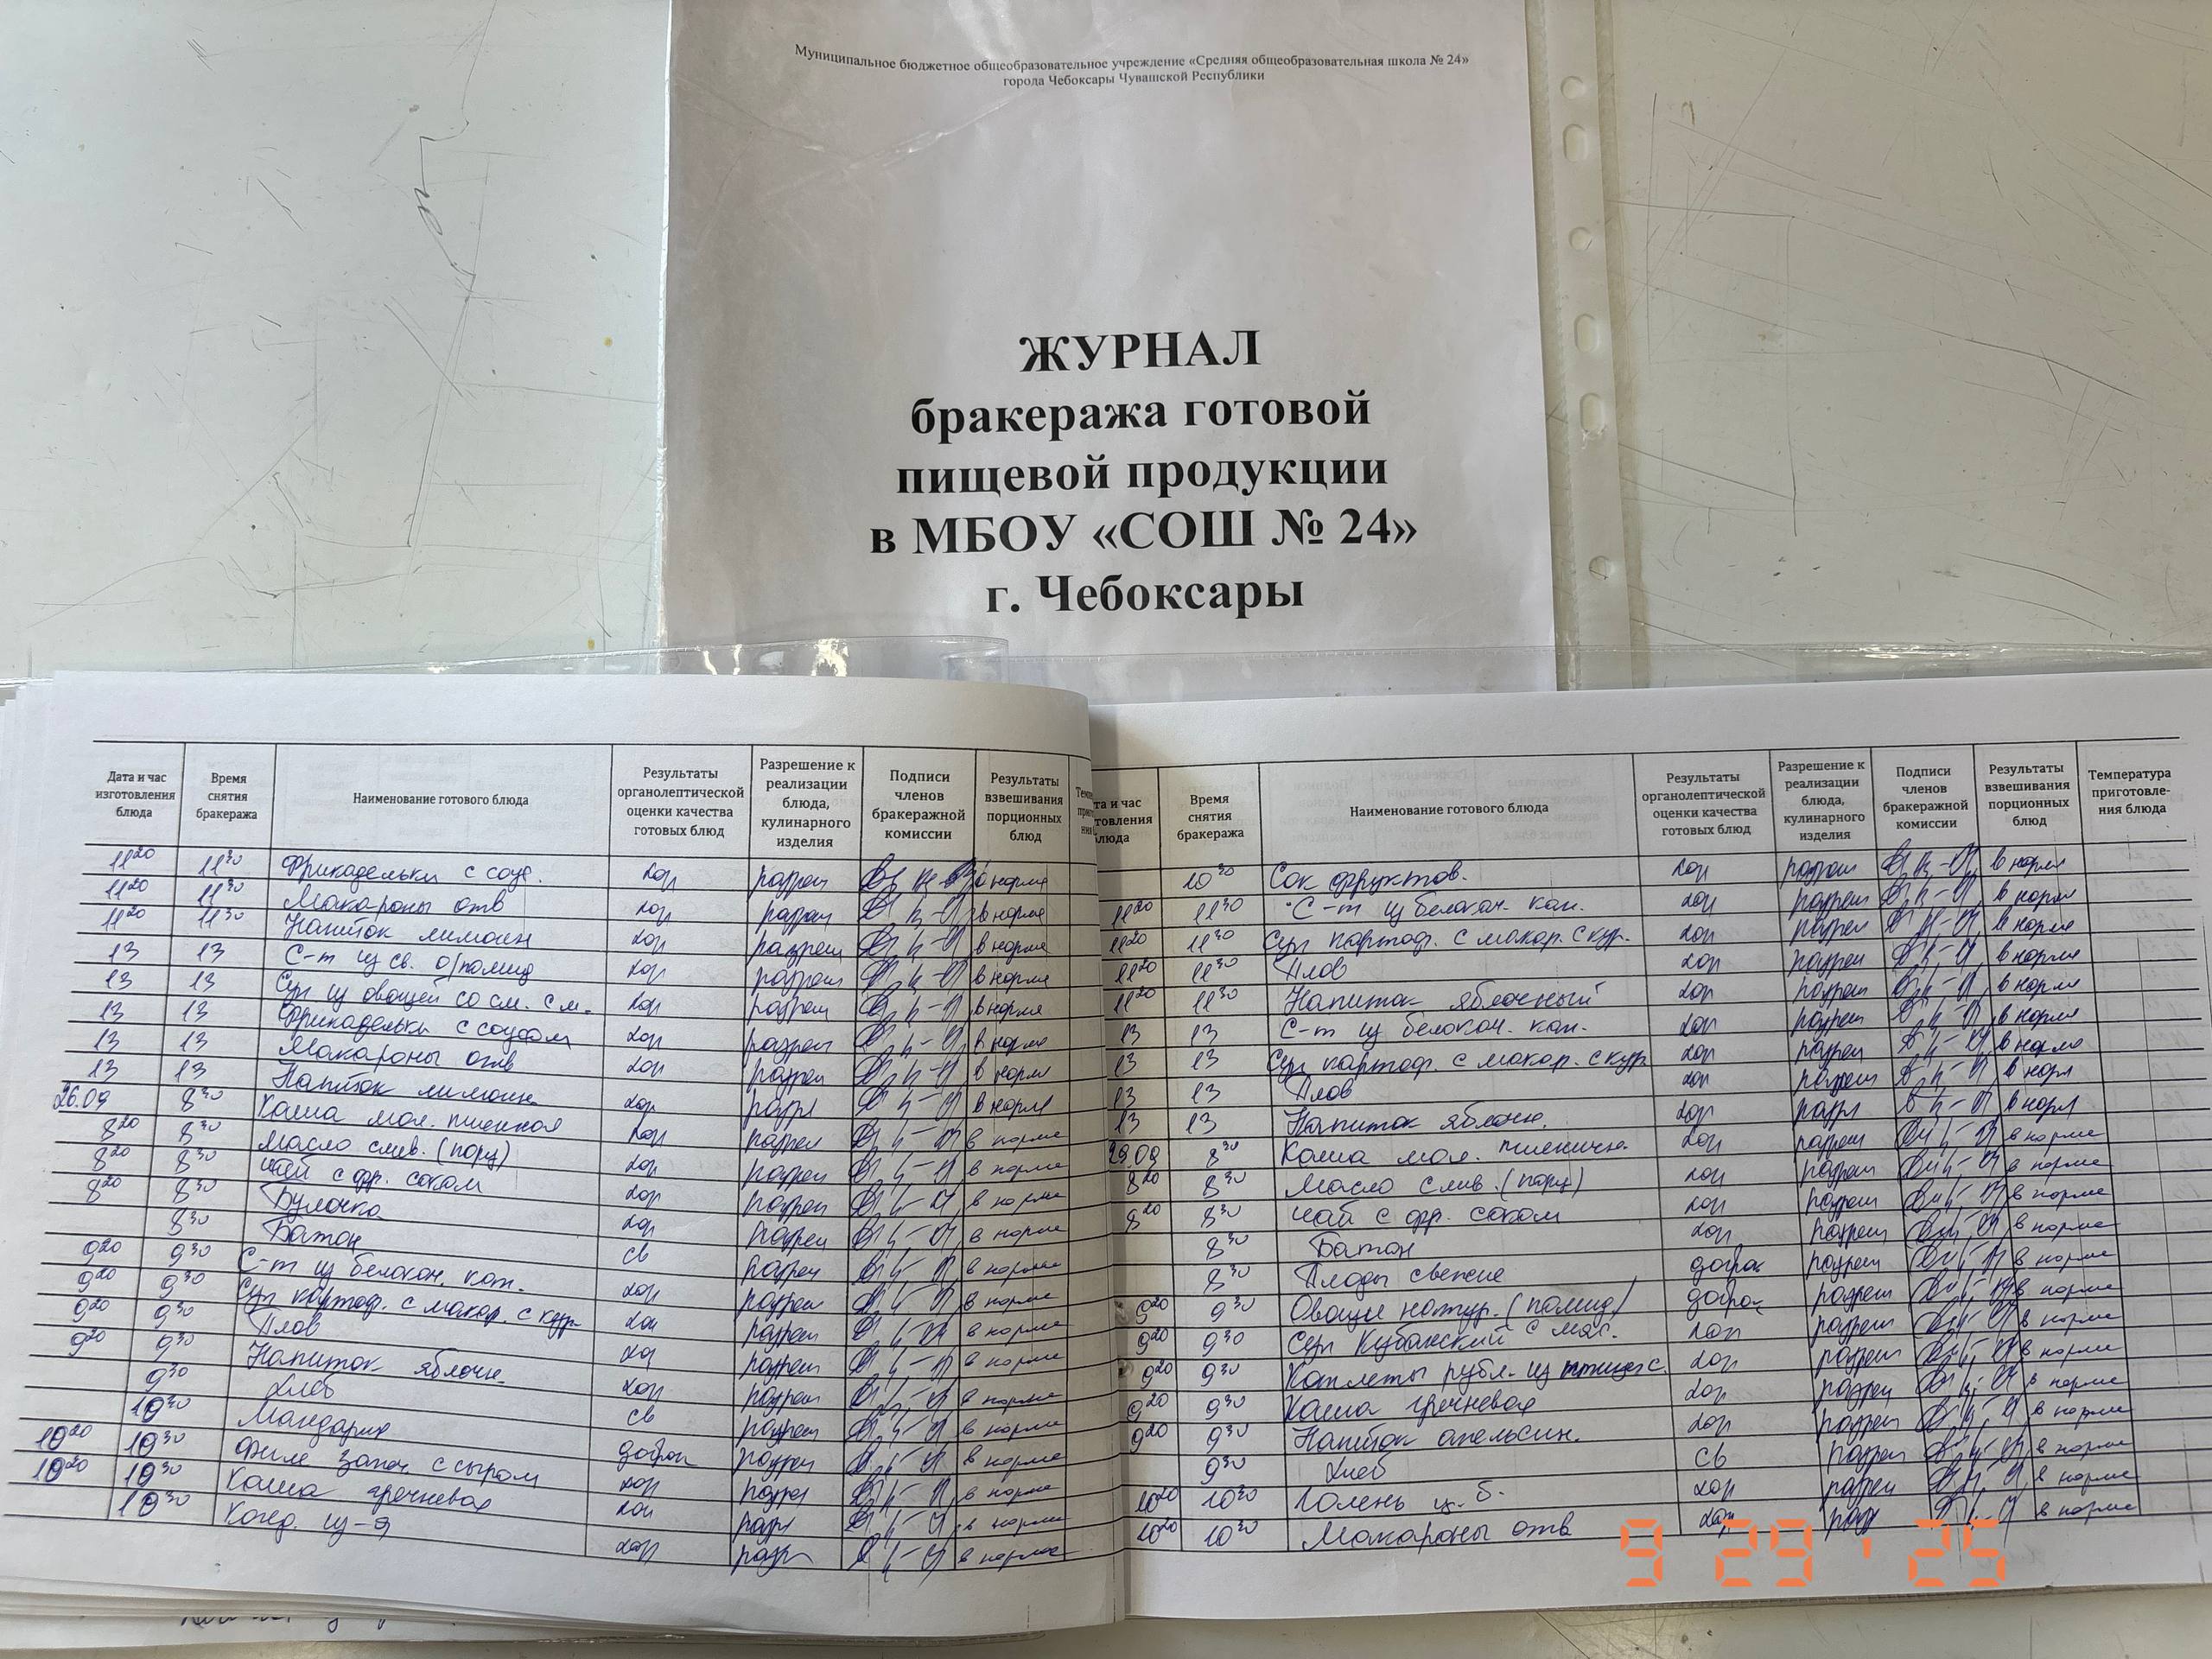 Муниципальное бюджетное общеобразовательное учреждение «Средняя общеобразовательная школа № 24»
города Чебоксары Чувашской Республики
ЖУРНАЛ
бракеража готовой
пищевой продукции
в МБОУ «СОШ № 24»
г. Чебоксары
Дата и час изготовления блюда Время снятия бракеража Наименование готового блюда Результаты органолептической оценки качества готовых блюд Разрешение к реализации блюда, кулинарного изделия Подписи членов бракеражной комиссии Результаты взвешивания порционных блюд
11 20 11 30 Фрикадельки с соус. хор разреш в норме
11 20 11 30 Макароны отв хор разреш в норме
11 20 11 30 Напиток лимонн хор разреш в норме
13 13 С-т из св. о/помид хор разреш в норме
13 13 Суп из овощей со см. с м. хор разреш в норме
13 13 Фрикадельки с соусом хор разреш в норме
13 13 Макароны отв хор разреш в норме
13 13 Напиток лимонн хор разр в норме
26.09 8 30 Каша мол. пшенная хор разреш в норме
8 20 8 30 Масло слив. (порц) хор разреш в норме
8 20 8 30 Чай с фр. соком хор разреш в норме
8 20 8 30 Булочка хор разреш в норме
8 30 Батон св разреш в норме
9 20 9 30 С-т из белокоч. кап. хор разреш в норме
9 20 9 30 Суп картоф. с макар. с кур. хор разреш в норме
9 20 9 30 Плов хор разреш в норме
9 20 9 30 Напиток яблочн. хор разреш в норме
9 30 Хлеб св разреш в норме
10 30 Мандарин доброк разреш в норме
10 20 10 30 Филе запеч. с сыром хор разреш в норме
10 20 10 30 Каша гречневая хор разр в норме
10 30 Конд. из-я хор разр в норме
та и час товления блюда Время снятия бракеража Наименование готового блюда Результаты органолептической оценки качества готовых блюд Разрешение к реализации блюда, кулинарного изделия Подписи членов бракеражной комиссии Результаты взвешивания порционных блюд Температура приготовле- ния блюда
10 30 Сок фруктов. хор разреш в норме
11 20 11 30 С-т из белокоч. кап. хор разреш в норме
11 20 11 30 Суп картоф. с макар. с кур. хор разреш в норме
11 20 11 30 Плов хор разреш в норме
11 20 11 30 Напиток яблочный хор разреш в норме
13 13 С-т из белокоч. кап. хор разреш в норме
13 13 Суп картоф. с макар. с кур. хор разреш в норме
13 13 Плов хор разреш в норм
13 13 Напиток яблочн. хор разр в норм
29.09 8 30 Каша мол. пшеничн. хор разреш в норме
8 20 8 30 Масло слив. (порц) хор разреш в норме
8 20 8 30 Чай с фр. соком хор разреш в норме
8 30 Батон хор разреш в норме
8 30 Плоды свежие доброк разреш в норме
9 20 9 30 Овощи натур. (помид) доброк разреш в норме
9 20 9 30 Суп Кубанский с мяс. хор разреш в норме
9 20 9 30 Котлеты рубл. из птицы с. хор разреш в норме
9 20 9 30 Каша гречневая хор разреш в норме
9 20 9 30 Напиток апельсин. хор разреш в норме
9 30 Хлеб св разреш в норме
10 20 10 30 Голень ц. б. хор разреш в норме
10 20 10 30 Макароны отв хор разр в норме
9 29 ' 25